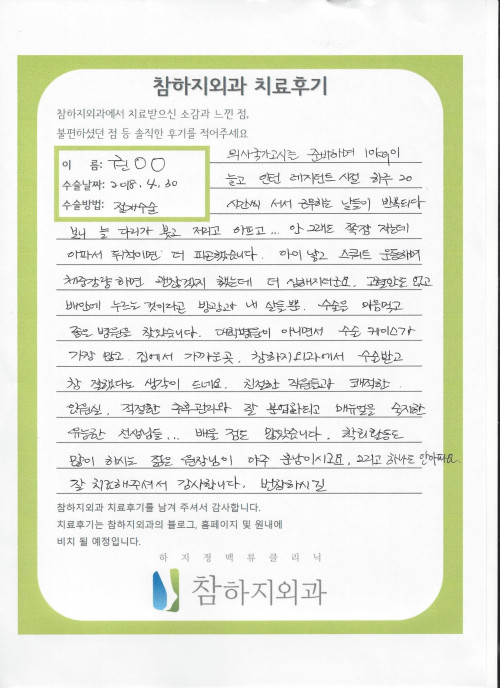 참하지외과 치료후기
참하지외과에서 치료받으신 소감과 느낀 점,
불편하셨던 점 등 솔직한 후기를 적어주세요
이 름: 권○○
수술날짜: 2018. 4. 30
수술방법: 절제수술
의사국가고시를 준비하며 10kg이
늘고 인턴 레지던트 시절 하루 20
시간씩 서서 근무하는 날들이 반복되다
보니 늘 다리가 붓고 저리고 아프고... 안 그래도 쪽잠 자는데
아파서 뒤척이면 더 피곤했습니다. 아이 낳고 스쿼트 운동하며
체중감량하면 괜찮겠지 했는데 더 심해지더군요. 고혈압도 없고
배안에 누르는 것이라곤 방광과 내 살들뿐. 수술을 마음먹고
좋은 병원을 찾았습니다. 대학병원이 아니면서 수술 케이스가
가장 많고 집에서 가까운곳, 참하지외과에서 수술받고
참 잘했다는 생각이 드네요. 친절한 직원들과 쾌적한
입원실, 적절한 추후관리와 잘 분업화되고 매뉴얼을 숙지한
유능한 선생님들... 배울 점도 많았습니다. 학회활동도
많이 하시는 젊은 원장님이 아주 훈남이시고요, 그리고 하나도 안아파요.
잘 치료해주셔서 감사합니다. 번창하시길
참하지외과 치료후기를 남겨 주셔서 감사합니다.
치료후기는 참하지외과의 블로그, 홈페이지 및 원내에
비치 될 예정입니다.
하지정맥류클리닉
참하지외과